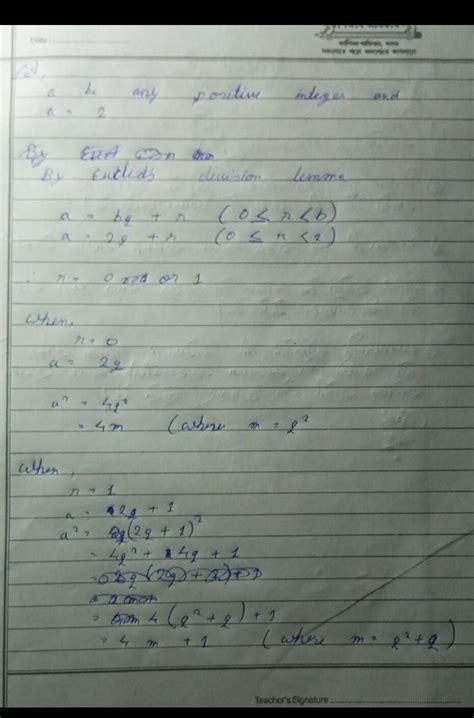 Date
Let,
a be any positive integer and
a = 2
By
By Euclid's division lemma
a = bq + r (0 ≤ r < b)
a = 2q + r (0 ≤ r < 2)
∴ r = 0 or 1
When,
r = 0
a = 2q
a² = 4q²
= 4m (where m = q²
When,
r = 1
a = 2q + 1
a² = (2q + 1)²
= 4q² + 4q + 1
= 4 (q² + q) + 1
= 4 m + 1 (where m = q² + q)
Teacher's Signature